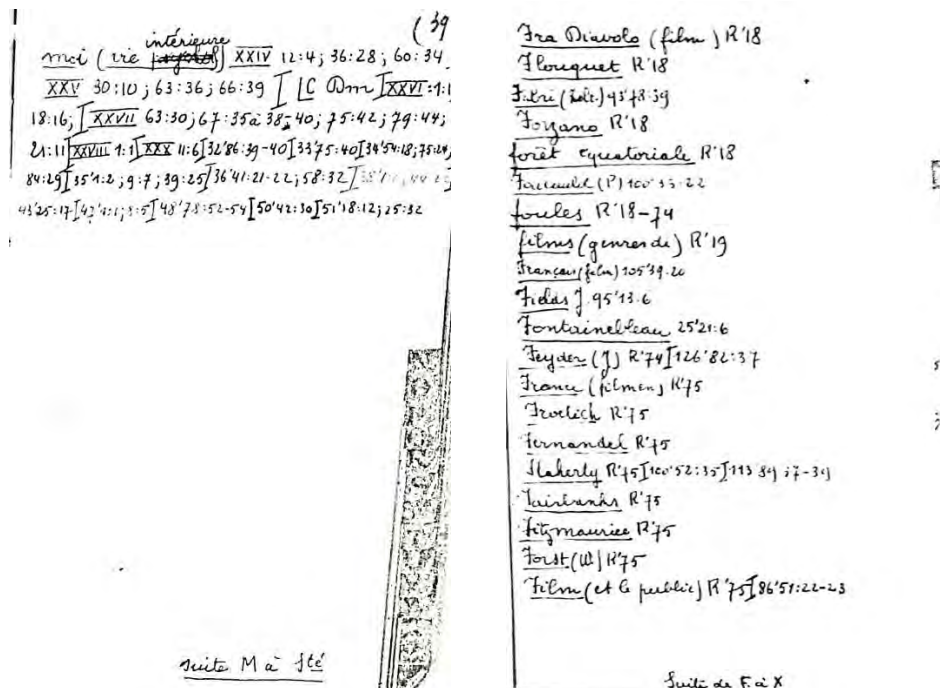 (39
intérieure
moi (vie) XXIV 12:4; 36:28; 60:34
XXV 30:10; 63:36; 66:39 [ LC Dm [XXVI:1:1
18:16; [XXVII 63:30; 67:35à 38-40; 75:42; 79:44;
21:11[XXVIII 1:1[XXX 11:6[32'86:39-40[33'75:40[34'54:18; 75:24,
84:29[35'1:2; 9:7; 39:25[36'41:21-22; 58:32
43'25:17[47'1:1; 8:5[48'78:52-54[50'42:30[51'18:12; 25:32
suite M à Sté
Fra Diavolo (film) R'18
Flouquet R'18
Forzano R'18
forêt équatoriale R'18
foules R'18-74
films (genres de) R'19
Français (film) 105'39.20
Fields J. 95'13.6
Fontainebleau 25'21:6
Feyder (J) R'74[126'82:37
France (film en) R'75
Froelich R'75
Fernandel R'75
Flaherty R'75[100'52:35[113
Fairbanks R'75
Fitzmaurice R'75
Forst (W) R'75
Film (et le public) R'75[86'51:22-23
Suite de F. à X